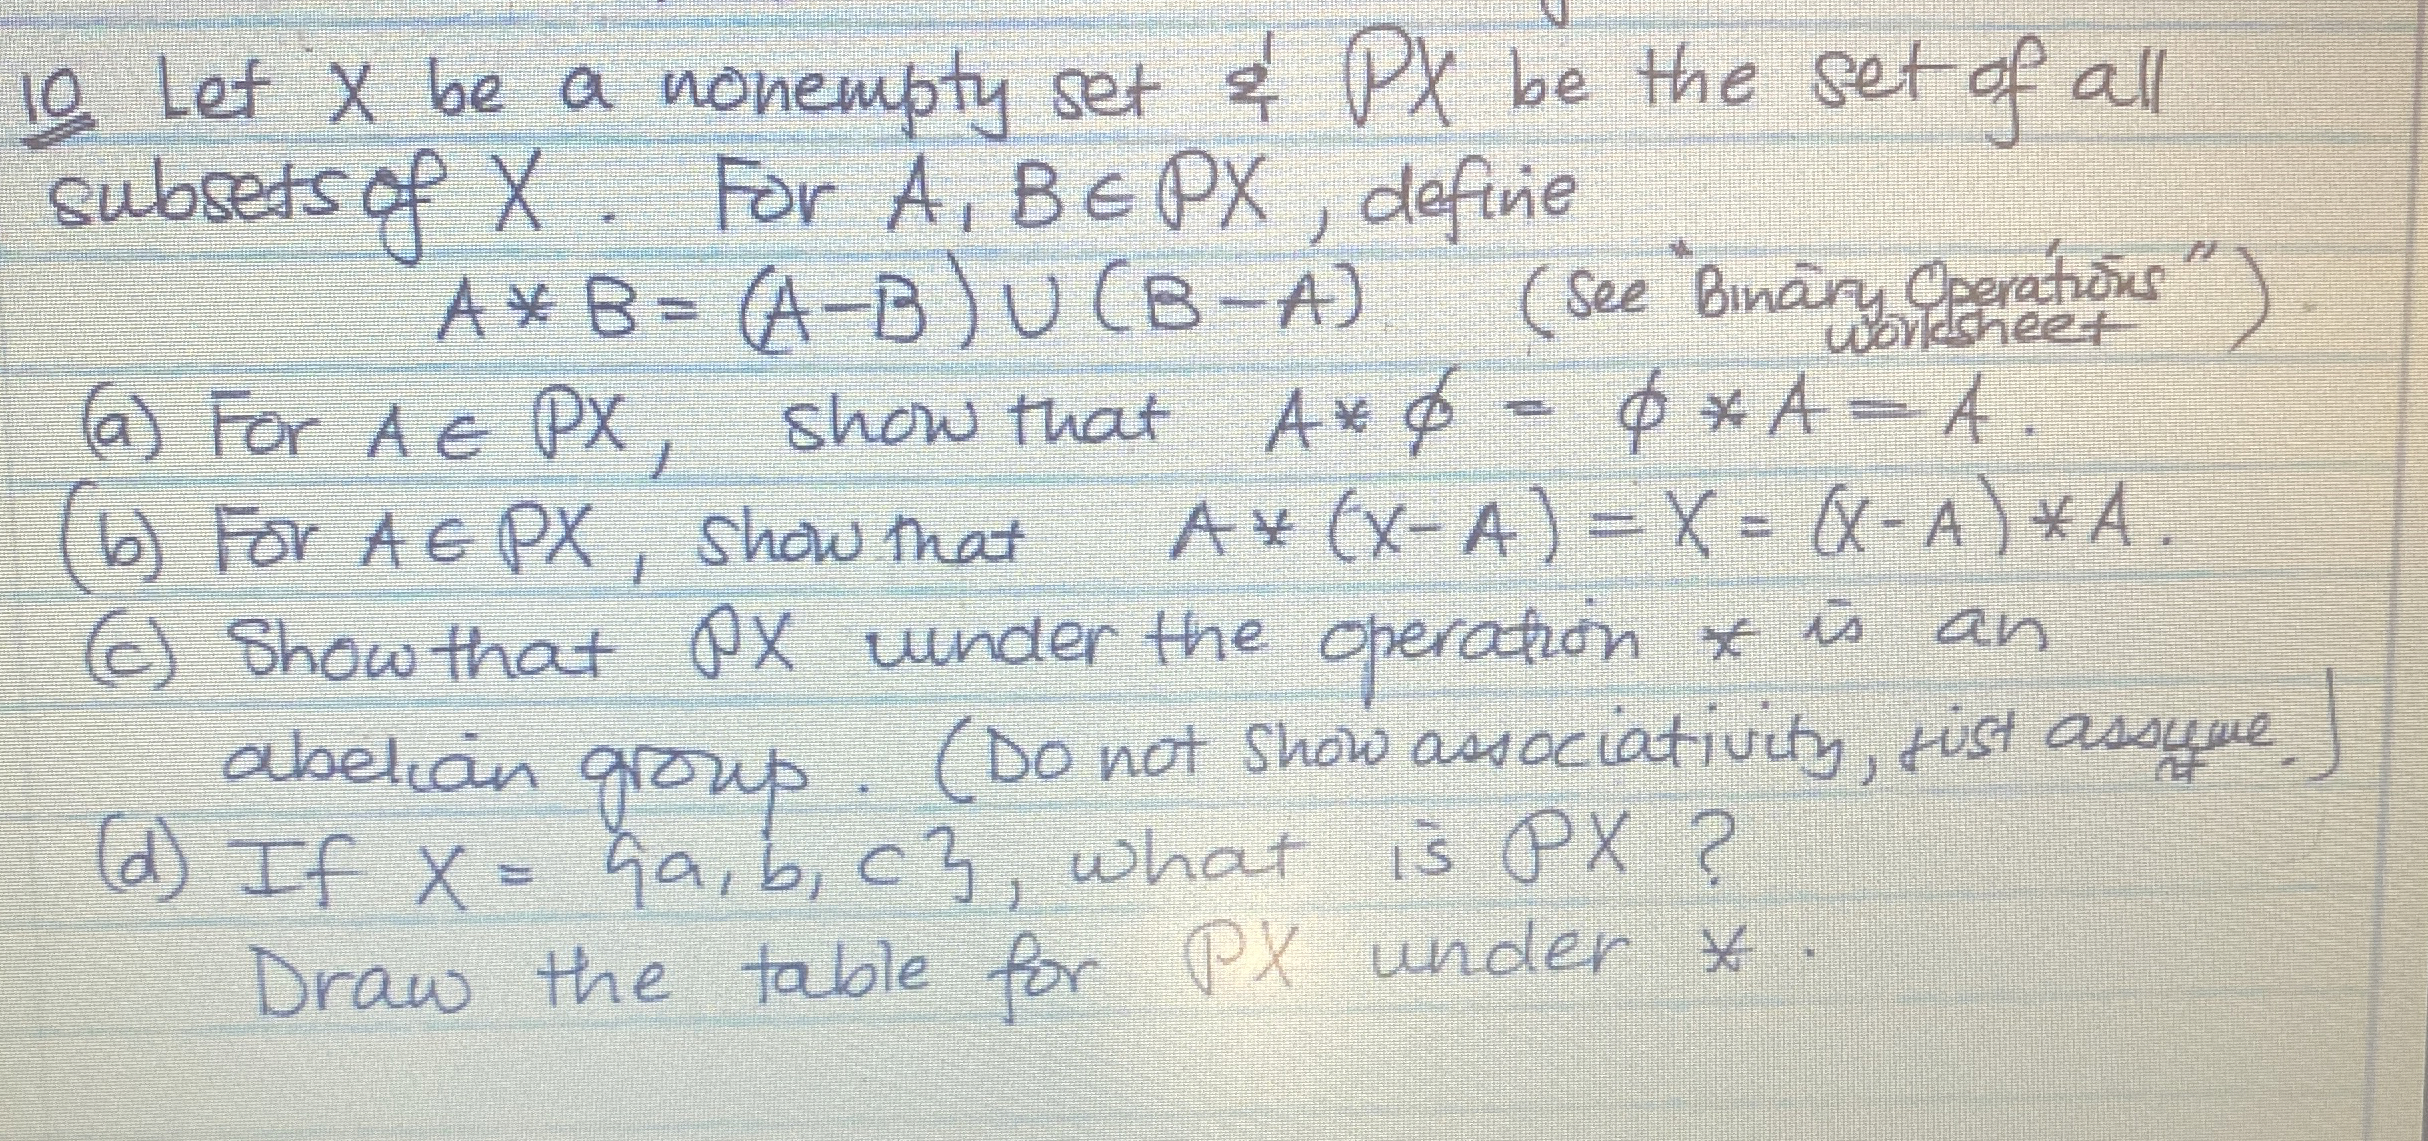 10 Let X be a nonempty set & PX be the set of all
subsets of X. For A, B ∈ PX, define
A * B = (A-B) ∪ (B-A) (See "Binary Operations" worksheet).
(a) For A ∈ PX, show that A * ϕ = ϕ * A = A.
(b) For A ∈ PX, show that A * (X-A) = X = (X-A) * A.
(c) Show that PX under the operation * is an
abelian group. (Do not show associativity, just assume it.)
(d) If X = {a, b, c}, what is PX ?
Draw the table for PX under *.